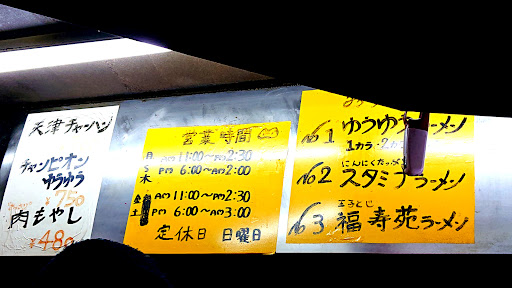 天津チャーハン
チャンピオン
ゆうゆう
¥750
肉もやし
¥480
営業時間
月 AM 11:00~PM2:30
~ PM 6:00~AM2:00
木
金 AM 11:00~PM2:30
土 PM 6:00~AM3:00
定休日 日曜日
No1 ゆうゆうラーメン
1カラ・2カ
にんにくたっぷり
No2 スタミナラーメン
玉子とじ
No3 福寿苑ラーメン